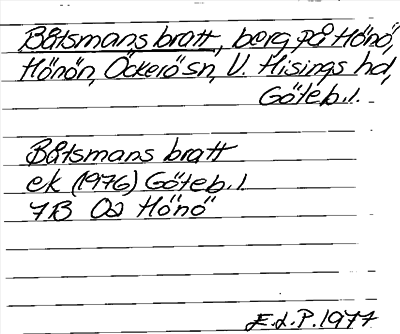 Båtsmans bratt, berg på Hönö,
Hönön, Öckerö sn, V. Hisings hd,
Göteb. l.
Båtsmans bratt
ek (1976) Göteb. l
7B 0a Hönö
E.d.P. 1977